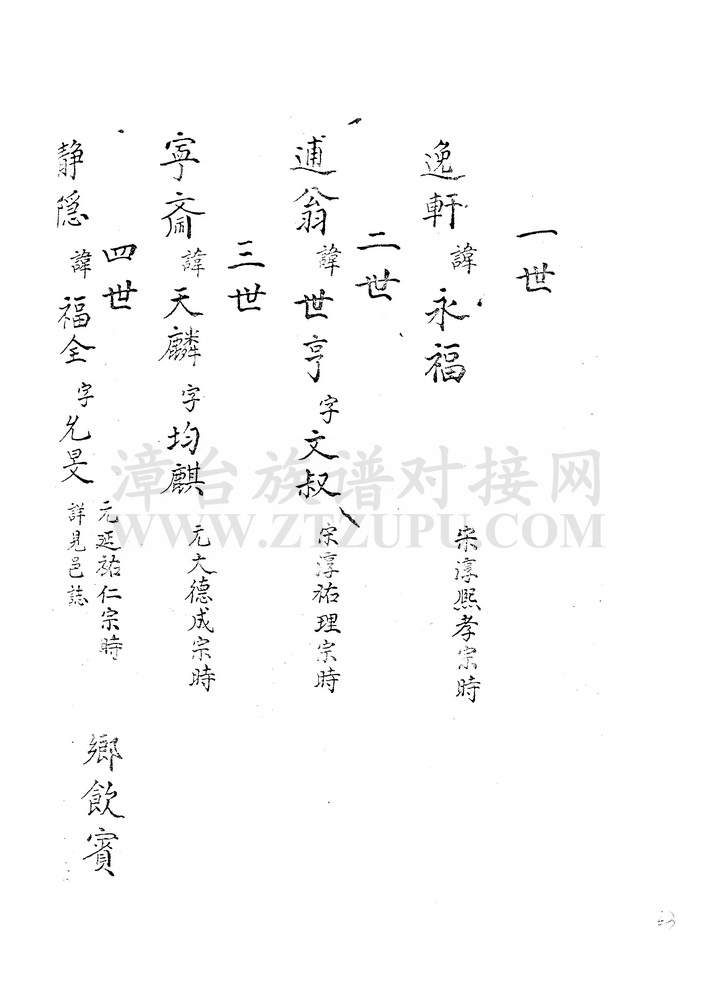 一世
逸軒 諱 永福 宋淳熙孝宗時
二世
逋翁 諱 世亨 字 文叔 宋淳祐理宗時
三世
寧齋 諱 天麟 字 均麒 元大德成宗時
四世
靜隱 諱 福全 字 允旻 元延祐仁宗時 詳見邑誌 鄉飲賓
漳台族谱对接网
WWW.ZTZUPU.COM
63